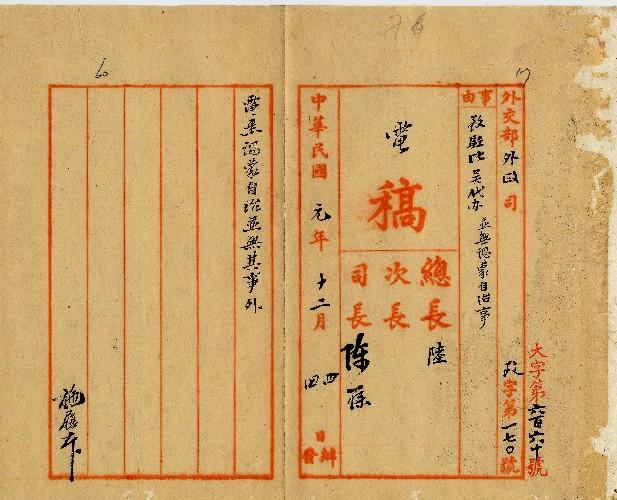 大字第六百六十號
外交部外政司
政字第一七〇號
事由
致駐比吳代办並無認蒙自治事
電
稿
總長 陸
次長
司長 陈
中華民國元年十二月四日辦
四發
電悉認蒙自治並無其事外
施履本
60
76
17